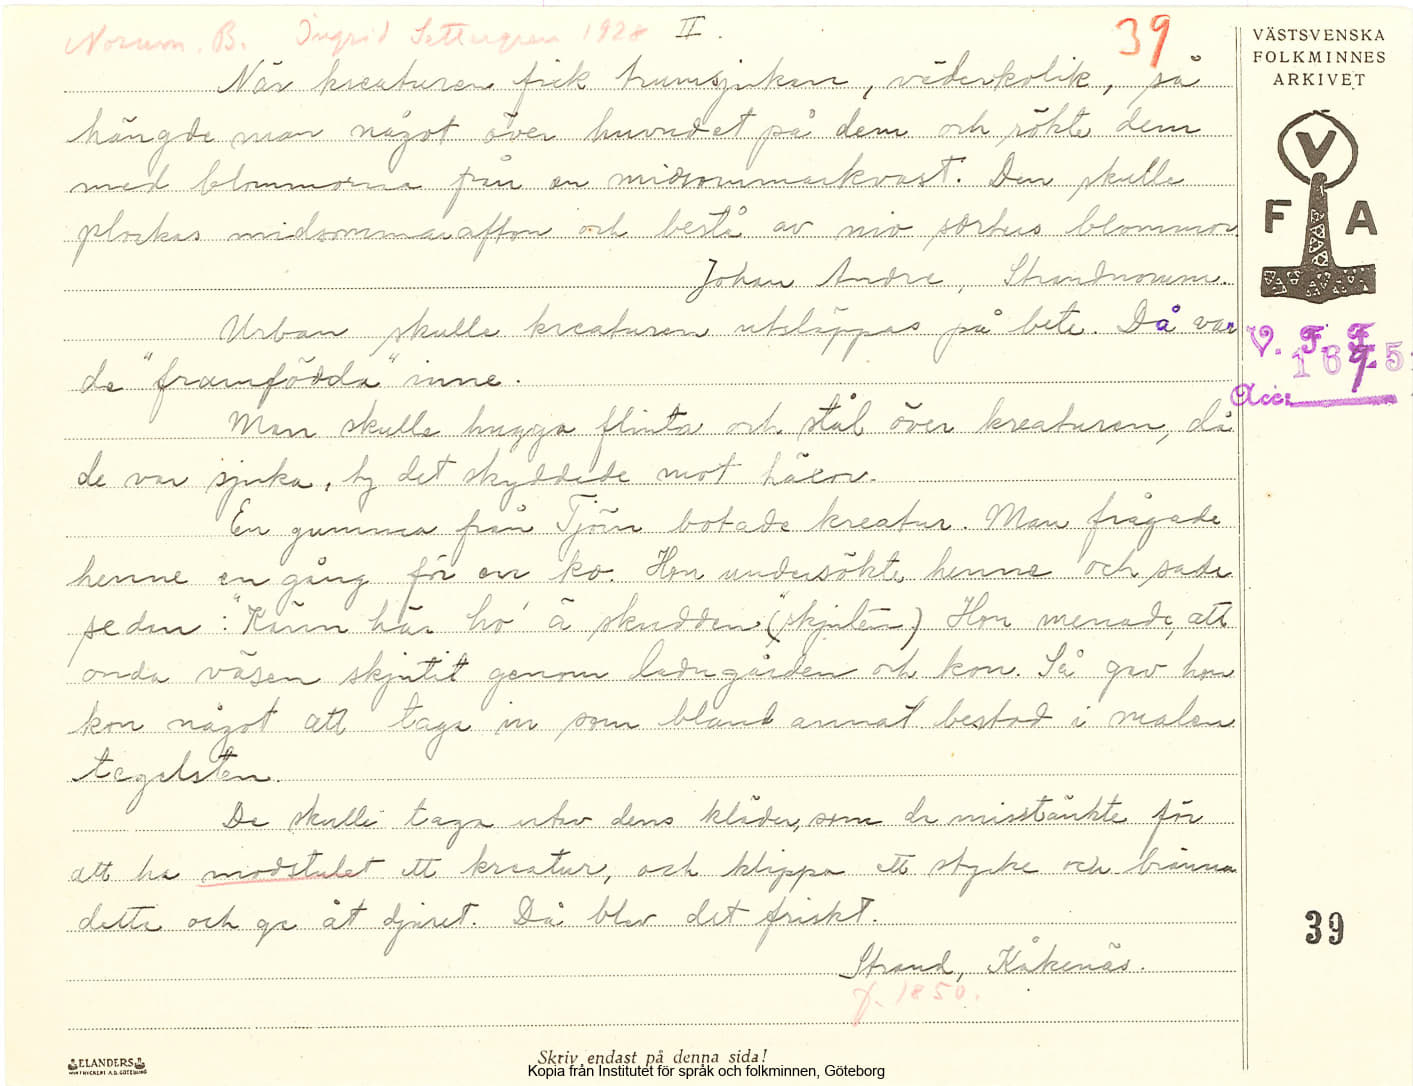 Norum. B. Ingrid Settergren 1928 II. 39
VÄSTSVENSKA
FOLKMINNES
ARKIVET
V
F A
V. F. F.
Acc:
När kreaturen fick trumsjukan, väderkolik, så
hängde man något över huvudet på dem och rökte dem
med blommorna från en midsommarkvast. Den skulle
plockas midsommarafton och bestå av nio sorters blommor.
Johan Andre, Strandnorum.
Urban skulle kreaturen utsläppas på bete. Då var
de "framfödda" inne.
Man skulle hugga flinta och stål över kreaturen, då
de var sjuka, ty det skyddade mot häxor.
En gumma från Tjörn botade kreatur. Man frågade
henne en gång för en ko. Hon undersökte henne och sade
sedan: "Känn här ho' ä skudden" (skjuten) Hon menade, att
onda väsen skjutit genom ladugården och kon. Så gav hon
kon något att taga in som bland annat bestod i malen
tegelsten.
De skulle taga utav dens kläder, som de misstänkte för
att ha modstulet ett kreatur, och klippa ett stycke och bränna
detta och ge åt djuret. Då blev det friskt.
Strand, Kåkenäs.
f. 1850.
39
ELANDERS
Skriv endast på denna sida!
Kopia från Institutet för språk och folkminnen, Göteborg